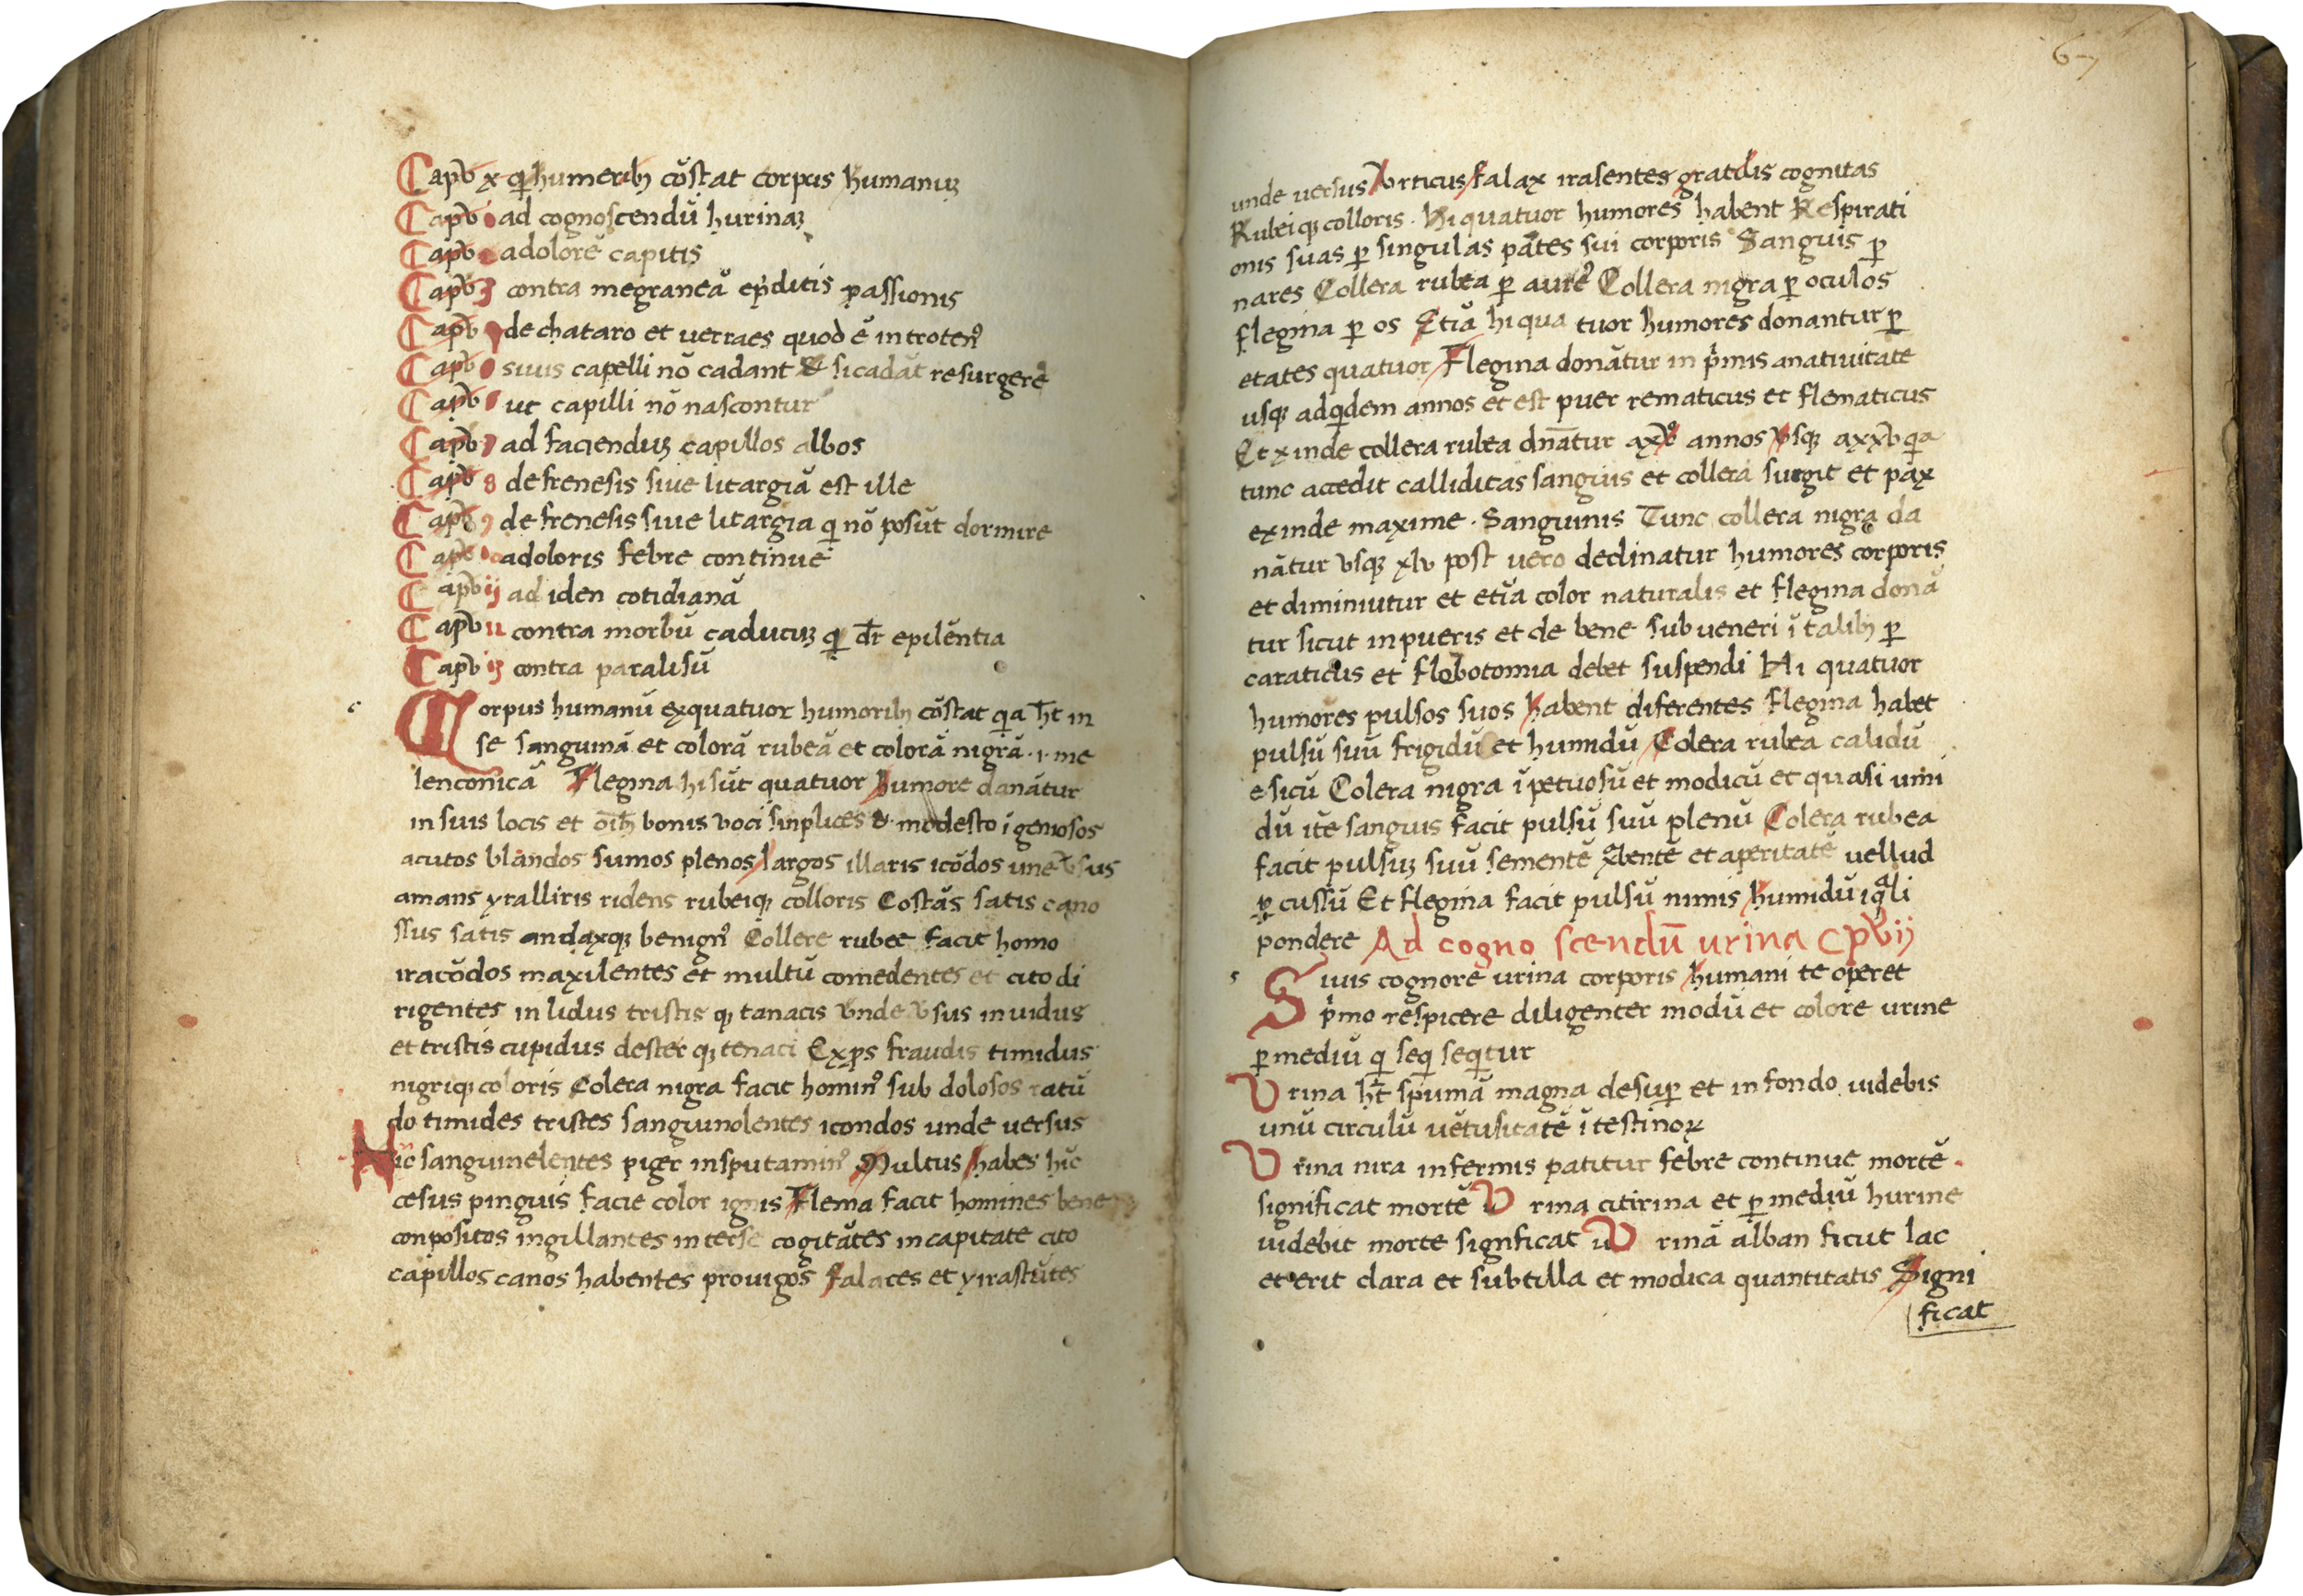 Capv̄ x qͥ humeribꝫ cōstat corpus humanuꝫ
Capv̄ ad cognoscendū hurinaꝫ
Capv̄ adolorē capitis
Capv̄ 3 contra megraneā ep̄ditis passionis
Capv̄ de chataro et verraes quod ē introtenꝰ
Capv̄ sivis capelli nō cadant & si cadāt resurgere
Capv̄ ut capilli nō nascontur
Capv̄ 7 ad facienduꝫ capillos albos
Capv̄ 8 de frenesis sive litargiā est ille
Capv̄ 9 de frenesis sive litargia qͥ nō posūt dormire
Capv̄ adoloris febre continue
Capv̄ ij ad iden cotidianā
Capv̄ 12 contra morbū caducuꝫ qͥ dr̄ epilēntia
Capv̄ 13 contra paralisū
c Corpus humanū exquatuor humoribꝫ cōstat qͣa h̄t in
se sanguinā et colorā rubeā et colorā nigrā .i. me
lenconicā Flegina hi sūt quatuor humore danātur
in suis locis et oīb bonis voci sinplices & modesto īgeniosos
acutos blandos sumos plenos largos illaris icōdos une v̄sus
amans yralliris ridens rubeiqꝫ colloris Costās satis cano
ssus satis andaxqꝫ benignꝰ Collere rubee facit homo
iracōdos maxilentes et multū comedentes et cito di
rigentes in lidus tristis qꝫ tanacis vnde v̄sus invidus
et tristis cupidus dester qꝫ tenaci Exꝑs fraudis timidus
nigriqꝫ coloris Colera nigra facit hominꝰ sub dolosos ratū
do timides tristes sanguinolentes icondos unde versus
Hic sanguinelentes piger insputaminꝰ Multus habes hīc
cesus pinguis facie color ignis Flema facit homines bene
conpositos ingillantes in terse cogitātes in capitate cito
capillos canos habentes provigos falaces et yirastūtes
67
unde versus Vrticus falax irasentes gratdis cognitas
Rubeiqꝫ colloris . Hi quatuor humores habent Respirati
onis suas ꝑ singulas pātes sui corporis Sanguis ꝑ
nares Collera rubea ꝑ aurēꝰ Collera nigra ꝑ oculos
flegina ꝑ os Etiā hi qua tuor humores donantur ꝑ
etates quatuor Flegina donātur in pͥmis anativitate
usqꝫ adqͥdem annos et est puer rematicus et flematicus
Et xinde collera rubea dn̄atur axvͦ annos vsqꝫ axxv qͥa
tunc accedit calliditas sangiis et collera surgit et pax
exinde maxime . Sanguinis Tunc collera nigra da
nātur vsqꝫ xlv post vero declinatur humores corporis
et diminiutur et etīa color naturalis et flegina donā
tur sicut in pueris et de bene sub veneri ī talibꝫ ꝑ
caraticus et flobotomia debet suspendi Hi quatuor
humores pulsos suos habent diferentes flegina habet
pulsū suū frigidū et humidū Colera rubea calidū
e sicū Colera nigra īpetuosū et modicū et quasi umi
dū itē sanguis facit pulsū suū plenū Colera rubea
facit pulsuꝫ suū sementē ꝯbentē et aperitatē vellud
ꝑ cussū Et flegina facit pulsū nimis humidū iqͣli
pondere Ad cogno scendū urina Cpv̄ ij
s Sivis cognorē urina corporis humani te operet
pͥmo respicere diligenter modū et colore urine
ꝑ mediū qͥ seqͥ seqͥtur
Vrina h̄t spumā magna desuꝑ et in fondo videbis
unū circulū vētusitatē ītestinoꝝ
Vrina nira infermis patitur febre continue mortē.
significat mortē Vrina citirina et ꝑ mediū hurine
videbit morte signficat Vrinā alban sicut lac
et erit clara et subtilla et modica quantitatis Signi
ficat